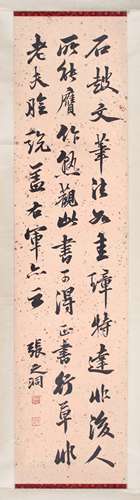 石鼓文華法如圭璋特達非後人
所能贋作熟觀此書可得正書行草非
老夫臆說蓋右軍亦云
張之洞